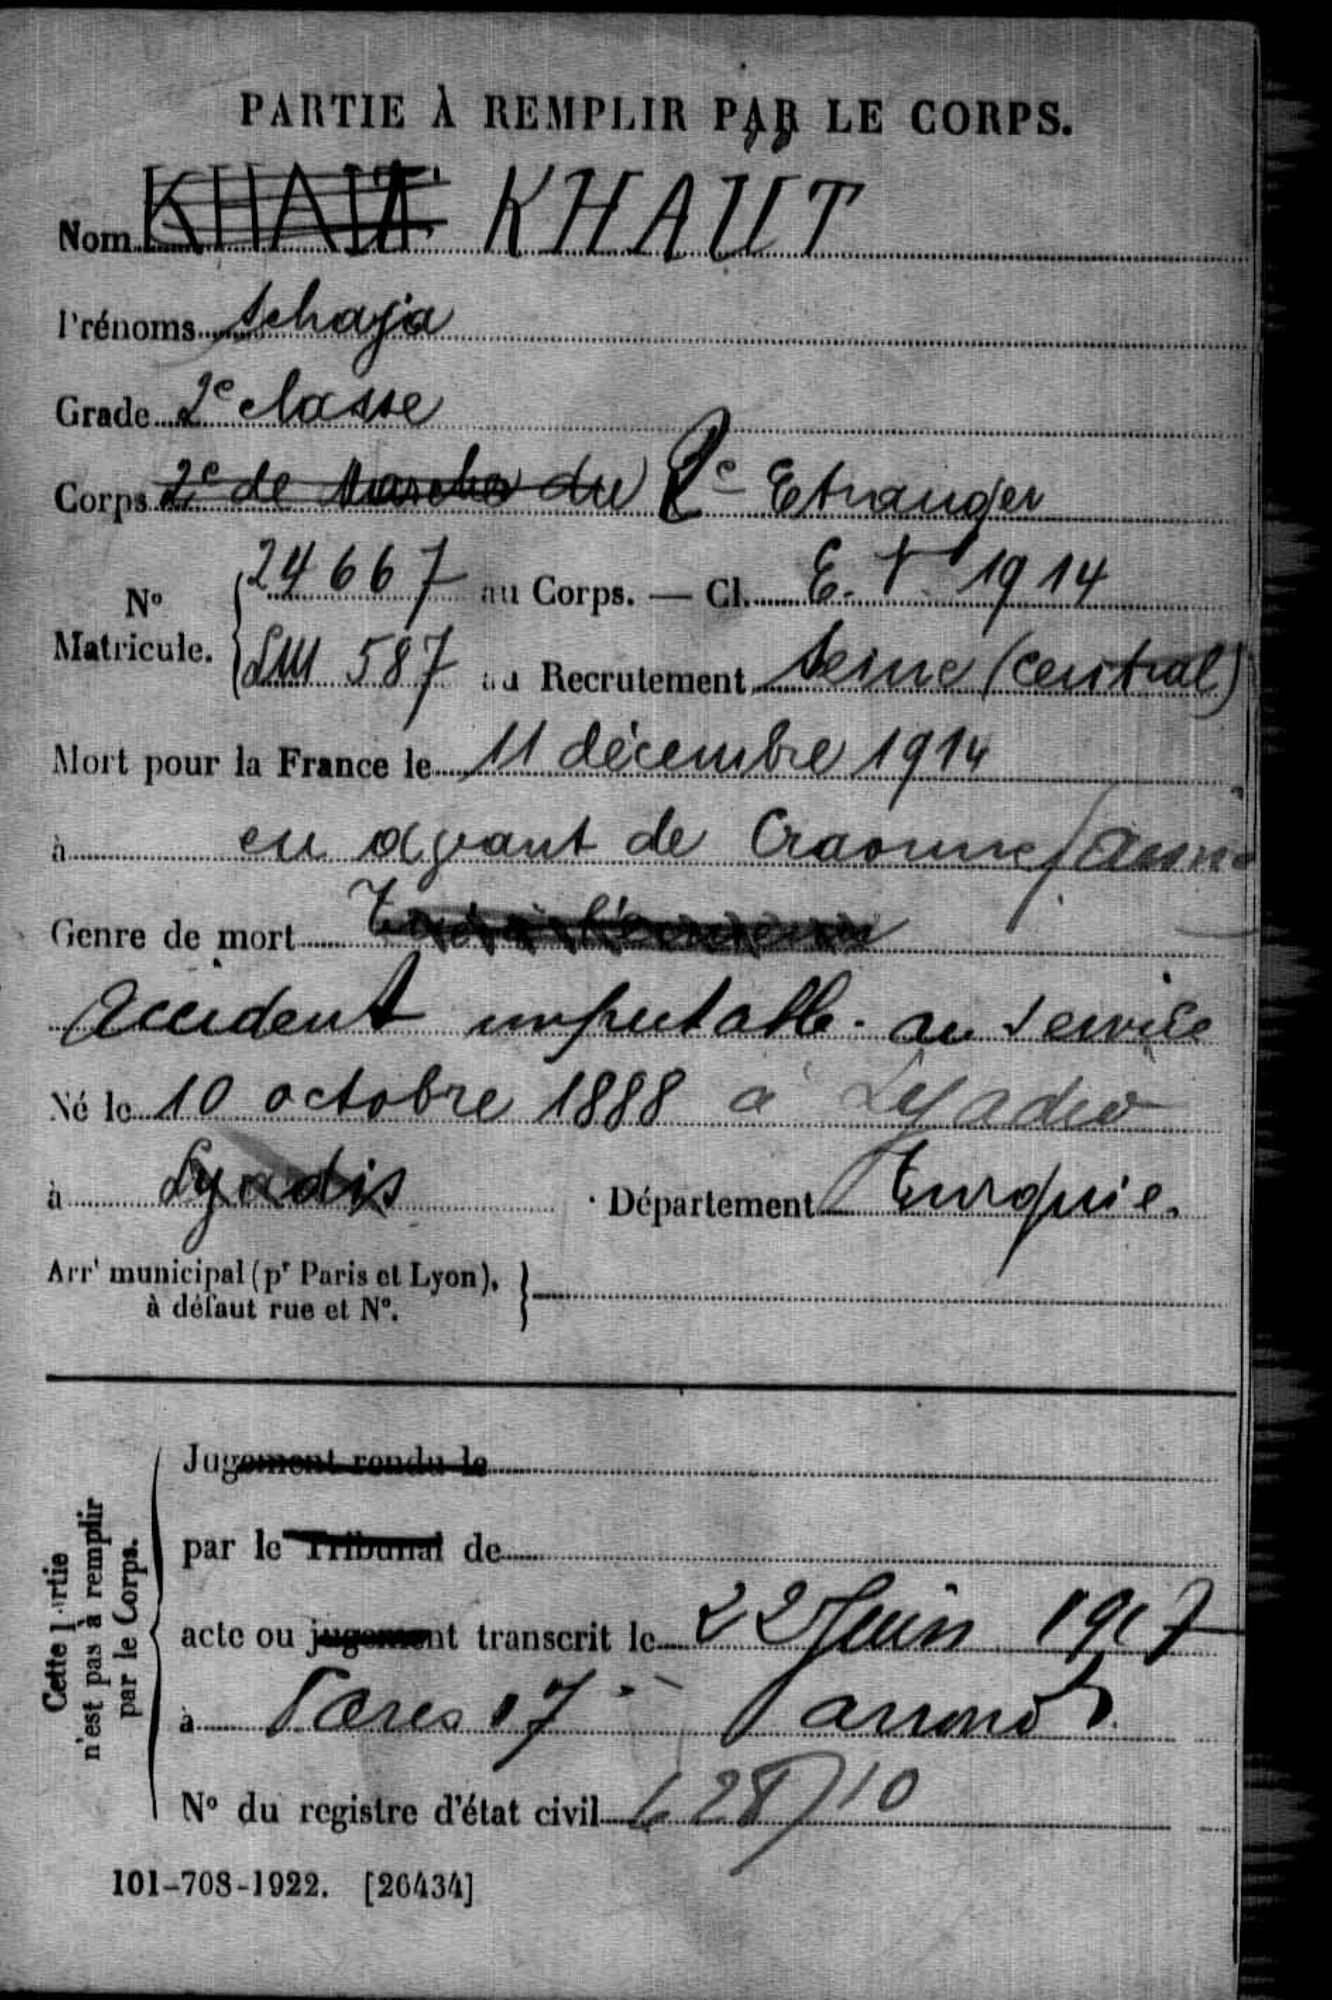 PARTIE À REMPLIR PAR LE CORPS.
Nom KHAÏT KHAÜT
Prénoms Schaja
Grade 2e classe
Corps 2e de Marche du 2e Etranger
No Matricule. 24667 au Corps. — Cl. E. V 1914
LM 587 au Recrutement Seine (Central)
Mort pour la France le 11 décembre 1914
à en avant de Craonne (Aisne
Genre de mort
accident imputable au service
Né le 10 octobre 1888 à
à Lyadis Département Turquie.
Arrt municipal (pr Paris et Lyon),
à défaut rue et No.
Cette partie
n'est pas à remplir
par le Corps.
Jugement rendu le
par le Tribunal de
acte ou jugement transcrit le 22 Juin 1917
à Paris 17e arrondt
No du registre d'état civil 628/10
101-708-1922. [26434]